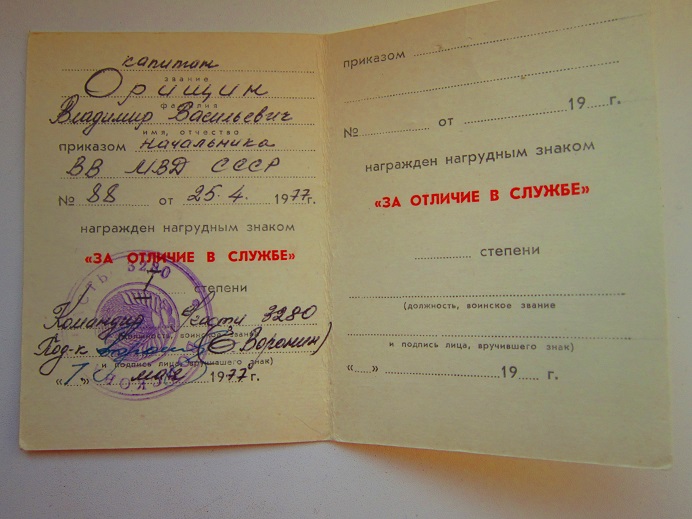 капитан
звание
Орищин
фамилия
Владимир Васильевич
имя, отчество
приказом начальника
ВВ МВД СССР
№ 88 от 25.4. 1977 г.
награжден нагрудным знаком
«ЗА ОТЛИЧИЕ В СЛУЖБЕ»
3280
I степени
Командир части 3280
(должность, воинское звание
Под-к (Воронин)
и подпись лица, вручившего знак)
мая 1977 г.
приказом
19 г.
№ от
награжден нагрудным знаком
«ЗА ОТЛИЧИЕ В СЛУЖБЕ»
степени
(должность, воинское звание
и подпись лица, вручившего знак)
« » 19 г.